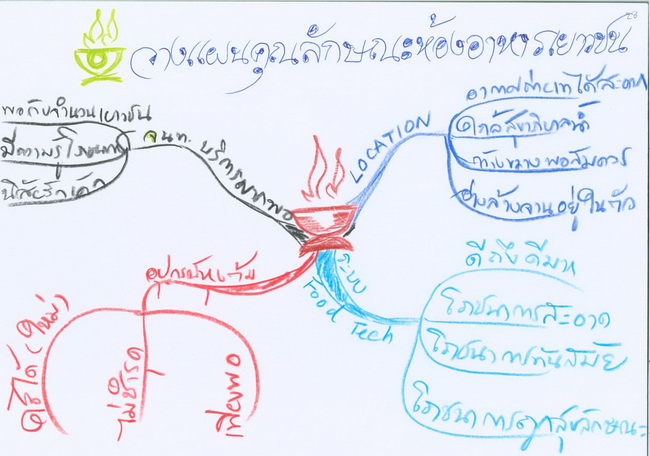 วางแผนคุณลักษณะห้องอาหารเยาวชน
พอกับจำนวนเยาวชน
มีความรู้โภชนาการ
นิสัยรักเด็ก
จนท. บริการมากพอ
LOCATION
อากาศถ่ายเทได้สะอาด
ใกล้สุขาภิบาลน้ำ
กว้างขวางพอสมควร
อ่างล้างจานอยู่ในครัว
อุปกรณ์
ใช้ได้ (ใหม่)
ไม่ชำรุด
เพียงพอ
ระบบ
Food Tech
ดีถึงดีมาก
โภชนาการสะอาด
โภชนาการทันสมัย
โภชนาการถูกสุขลักษณะ